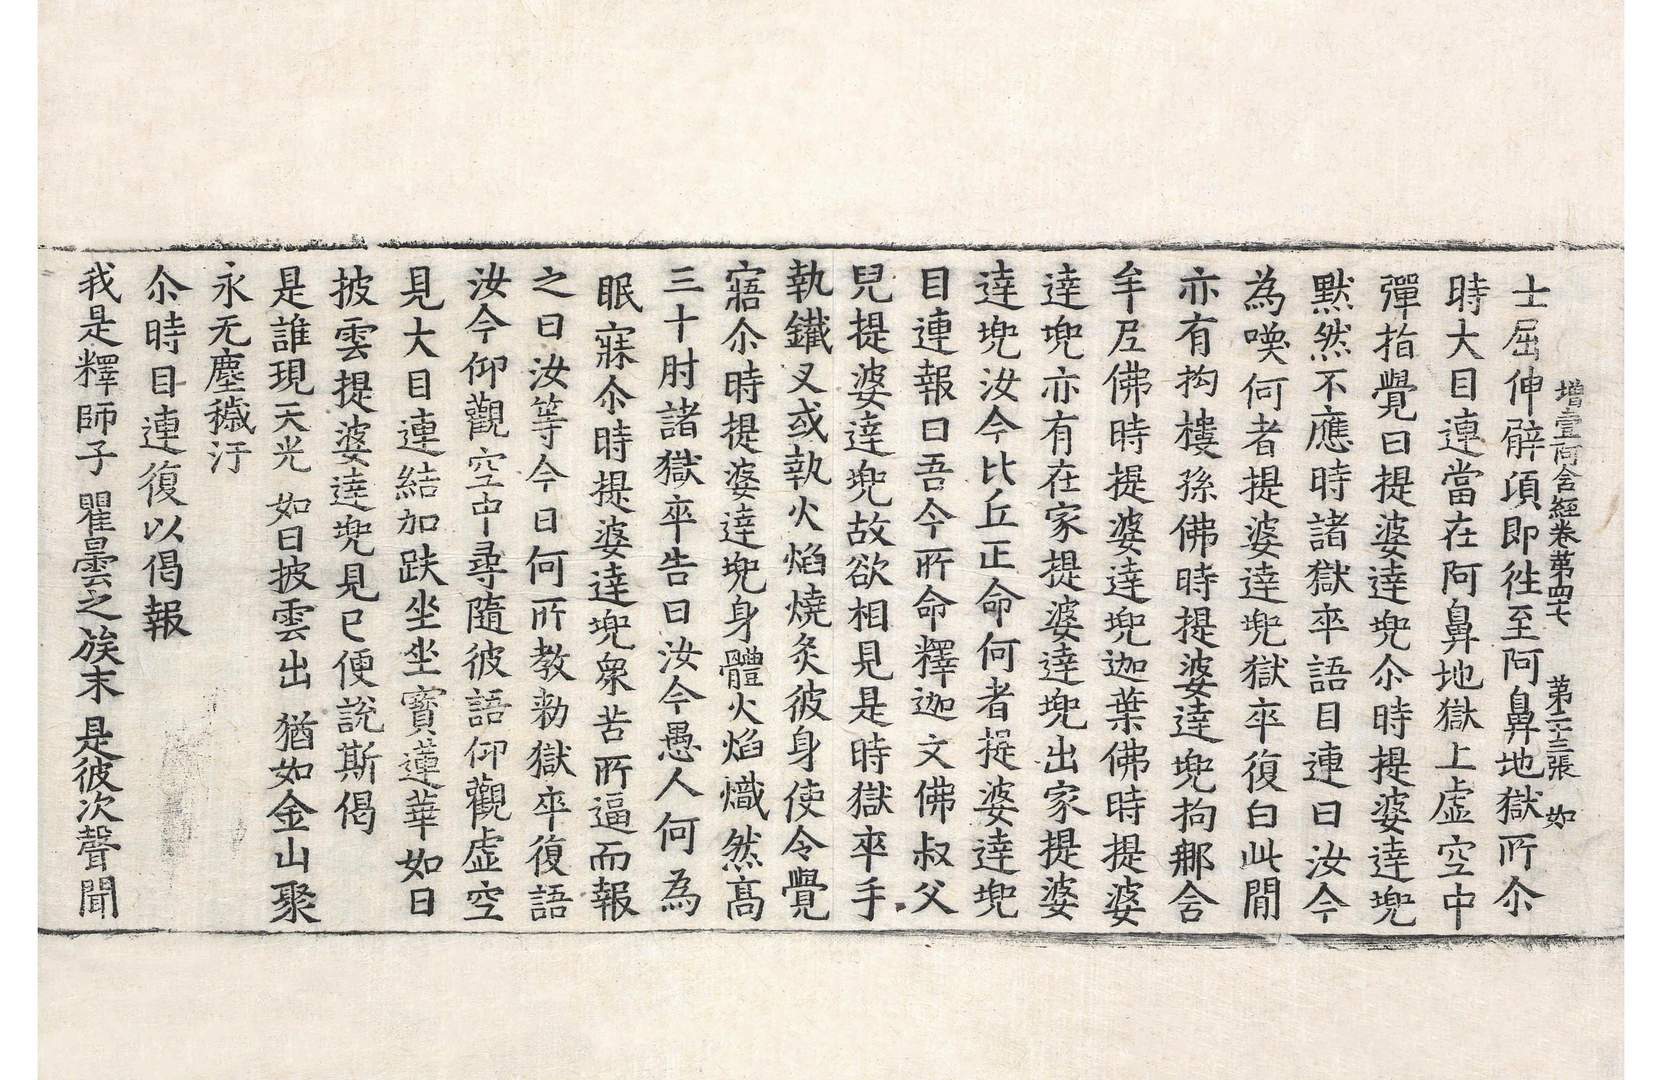 增壹阿含經卷第四七 第二十三張 如
士屈伸臂項即徃至阿鼻地獄所尒
時大目連當在阿鼻地獄上虛空中
彈指覺曰提婆達兜尒時提婆達兜
默然不應時諸獄卒語目連曰汝今
為喚何者提婆達兜獄卒復白此間
亦有拘樓孫佛時提婆達兜拘那舍
牟尼佛時提婆達兜迦葉佛時提婆
達兜亦有在家提婆達兜出家提婆
達兜汝今比丘正命何者提婆達兜
目連報曰吾今所命釋迦文佛叔父
兒提婆達兜故欲相見是時獄卒手
執鐵叉或執火焰燒炙彼身使令覺
寤尒時提婆達兜身體火焰熾然高
三十肘諸獄卒告曰汝今愚人何為
眠寐尒時提婆達兜衆苦所逼而報
之曰汝等今日何所教勑獄卒復語
汝今仰觀空中尋隨彼語仰觀虛空
見大目連結加趺坐坐寶蓮華如日
披雲提婆達兜見已便說斯偈
是誰現天光 如日披雲出 猶如金山聚
永无塵穢汙
尒時目連復以偈報
我是釋師子 瞿曇之族末 是彼次聲聞